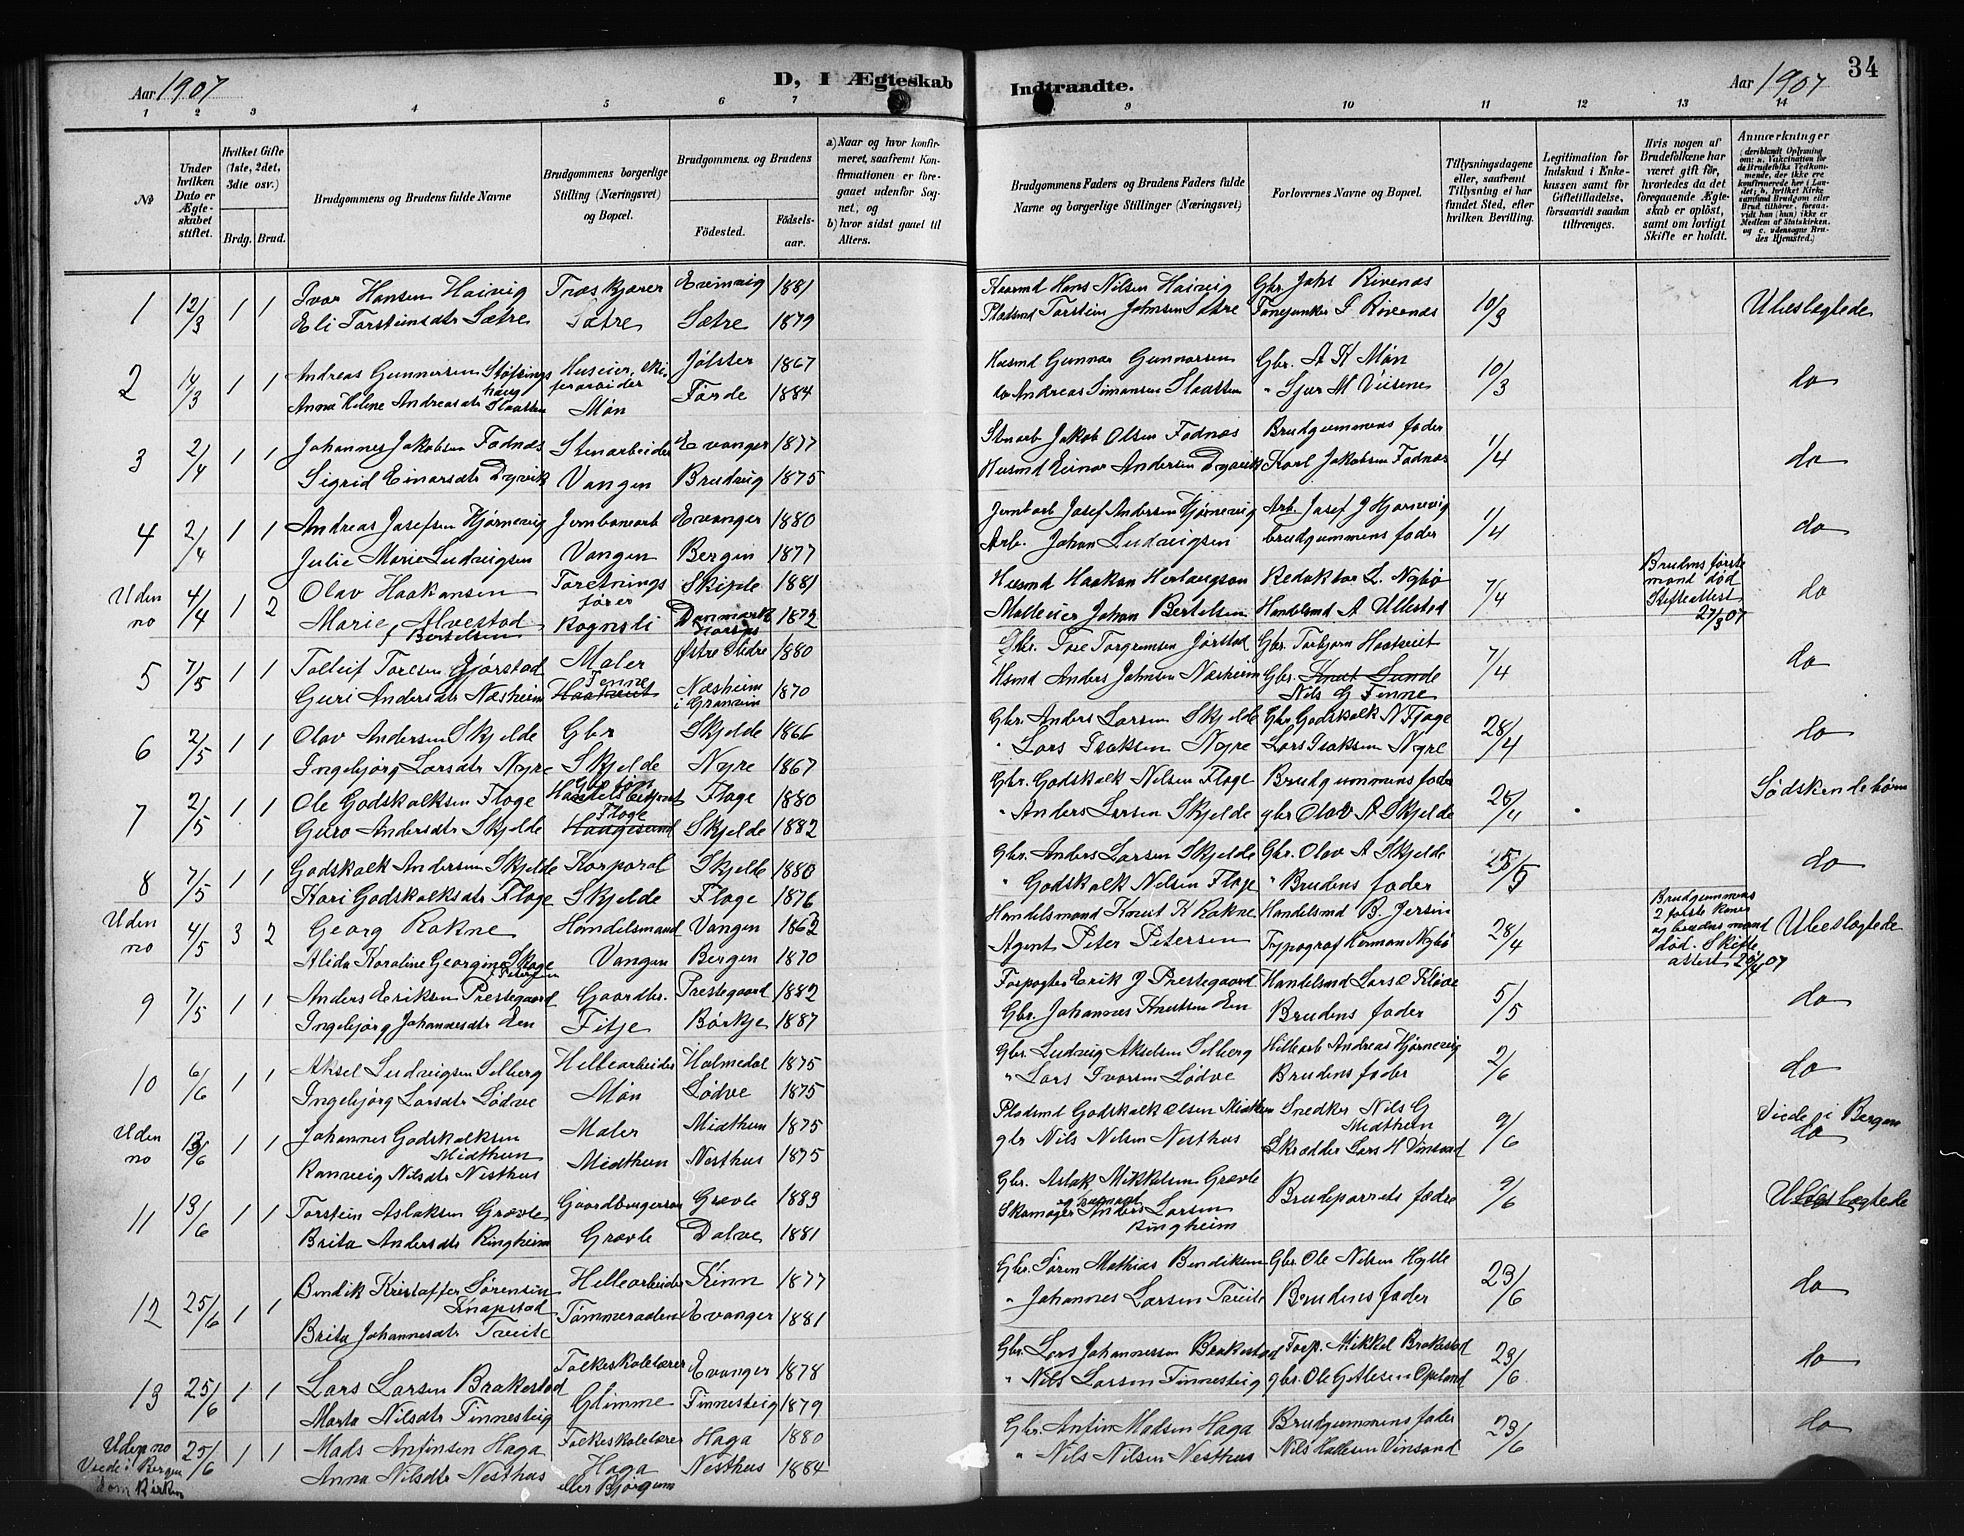 Aar 1907
D, I Ægteskab
Indtraadte.
Aar 1907
34
1 2 3 4 5 6 7 9 10 11 12 13 14
No
Under hvilken Dato er Ægteskabet stiftet.
Hvilket Gifte (1ste, 2det, 3die osv.)
Brdg. Brud.
Brudgommens og Brudens fulde Navne
Brudgommens borgerlige Stilling (Næringsvei) og Bopæl.
Brudgommens. og Brudens
Fødested.
Fødselsaar.
a) Naar og hvor konfirmeret, saafremt Konfirmationen er foregaaet udenfor Sognet, og
b) hvor sidst gaaet til Alters.
Brudgommens Faders og Brudens Faders fulde Navne og borgerlige Stillinger (Næringsvei)
Forlovernes Navne og Bopæl.
Tillysningsdagene eller, saafremt Tillysning ei har fundet Sted, efter hvilken Bevilling.
Legitimation for Indskud i Enkekassen samt for Giftetilladelse, forsaavidt saadan tiltrænges.
Hvis nogen af Brudefolkene har været gift før, hvorledes da det foregaaende Ægteskab er opløst, samt om lovligt Skifte er holdt.
Anmærkninger
(deriblandt Oplysning om: a. Vaccination for de Brudefolks Vedkommende, der ikke ere konfirmerede her i Landet; b. hvilket Kirkesamfund Brudgom eller Brud tilhører, forsaavidt han (hun) ikke er Medlem af Statskirken, og c. udensogns Brudes Hjemsted.)
1 12/3 1 1 Ivar Hansen Haivig Træskjærer Evenvig 1881 Haarmd Hans Nilsen Haivig Gbr Johs Rivenæs 10/3 Ubeslægtede
Eli Torsteinsdtr Sætre Sætre Sætre 1879 Pladsmd Torstein Johnsen Sætre Fanejunker S Rivenæs
2 14/3 1 1 Andreas Gunnarsen Støfringshaug Huseier, Skiferarbeider Jølster 1867 Husmd Gunnar Gunnarsen Gbr. A K Møn 10/3 do
Anna Heline Andreasdtr Slaatten Møn Førde 1884 do Andreas Simonsen Slaatten " Sjur M Veisene
3 2/4 1 1 Johannes Jakobsen Fadnæs Stenarbeider Evanger 1877 Stenarb Jakob Olsen Fadnæs Brudgummens fader 1/4 do
Sigrid Einarsdtr Dyvik Vangen Brudvig 1875 Husmd Einar Andersen Dyvik Karl Jakobsen Fadnæs
4 2/4 1 1 Andreas Josefsen Hjørnevig Jernbanearb Evanger 1880 Jernbarb Josef Andersen Hjørnevig Arb. Josef J Hjørnevig 1/4 do
Julie Marie Ludvigsen Vangen Bergen 1877 Arb. Johan Ludvigsen brudgummens fader
Uden no 4/4 1 2 Olav Haakonsen Forretningsfører 1881 Husmd Haakon Herlaugson Redaktør L. Nybø 7/4 Brudens første mand død Skifteattest 27/3 07 do
Marie Alvestad f Bertelsen Rognsli Danmark Horsens 1872 Mølleeier Johan Bertelsen Handelsmd A Ullestad
5 7/5 1 1 Tolleif Toresen Jørstad Maler Østre Slidre 1880 Gbr. Tore Torgrimsen Jørstad Gbr. Torbjørn Haatveit 7/4 do
Guri Andersdtr Næsheim Finne Haatveit Næsheim i Granvin 1870 Husmd Anders Johnsen Næsheim Gbr. Knut Lunde Nils G Finne
6 2/5 1 1 Olav Andersen Skjelde Gbr Skjelde 1866 Gbr. Anders Larsen Skjelde Gbr Godskalk N Flage 28/4 do
Ingebjørg Larsdtr Nyre Skjelde Nyre 1867 " Lars Isaksen Nyre Lars Isaksen Nyre
7 2/5 1 1 Ole Godskalksen Flage Handelsbetjent Flage 1880 Gbr. Godskalk Nilsen Flage Brudgummens fader 28/4 Sødskendebørn
Guro Andersdtr Skjelde Flage Haugesund Skjelde 1882 " Anders Larsen Skjelde gbr Olav A Skjelde
8 7/5 1 1 Godskalk Andersen Skjelde Korporal Skjelde 1880 Gbr. Anders Larsen Skjelde Gbr. Olav A Skjelde do
Kari Godskalksdtr Flage Skjelde Flage 1876 " Godskalk Nilsen Flage " Brudens fader
Uden no 4/5 3 2 Georg Rokne Handelsmand Vangen 1862 Handelsmand Knut K Rokne Handelsmd B. Jersin 28/4 Brudgummens 2 første koner og brudens mand død. Skifteattest 20/4 07 Ubeslægtede
Alida Karoline Georgine Skage f Petersen Vangen Bergen 1870 Agent Peter Petersen Typograf Herman Nybø
9 7/5 1 1 Anders Eriksen Prestegaard Gaardbr. Prestegaard 1882 Forpagter Erik J Prestegaard Handelsmd Lars E Kløve 5/5 do
Ingebjørg Johannesdtr Een Fitje Børkje 1887 Gbr. Johannes Knutsen Een Brudens fader
10 6/6 1 1 Aksel Ludvigsen Selberg Hellearbeider Holmedal 1875 Gbr. Ludvig Akselsen Selberg Hellearb Andreas Hjørnevig 2/6 do
Ingebjørg Larsdtr Lødve Møn Lødve 1875 " Lars Ivarsen Lødve Brudens fader
Uden no 13/6 1 1 Johannes Godskalksen Midthun Maler Midthun 1875 Pladsmd Godskalk Olsen Midthun Snedker Nils G Midthun 9/6 Viede i Bergen do
Ranveig Nilsdtr Nesthus Midthun Nesthus 1875 gbr Nils Nilsen Nesthus Skrædder Lars H Vinsand
11 13/6 1 1 Torstein Aslaksen Grovle Gaardbrugerson Grovle 1883 Gbr. Aslak Mikkelsen Grovle Brudeparrets fædre 9/6 Ubeslægtede
Brita Andersdtr Ringheim Grovle Dalve 1881 Skomager Anders Larsen Ringheim
12 25/6 1 1 Bendik Kristoffer Sørensen Knapstad Hellearbeider Kinn 1877 Gbr. Søren Mathias Bendiksen Gbr. Ole Nilsen Hylle 23/6 do
Brita Johannesdtr Tveite Tømmeraalen Evanger 1881 " Johannes Larsen Tveite Brudens fader
13 25/6 1 1 Lars Larsen Brakestad Folkeskolelærer Evanger 1878 Gbr. Lars Johannessen Brakestad Forp. Mikkel Brakestad 23/6 do
Marta Nilsdtr Finnesteig Glimme Finnesteig 1879 " Nils Larsen Finnesteig gbr. Ole Gitlesen Opeland
Uden no Viede i Bergen Domkirken 25/6 1 1 Mads Anfinsen Haga Folkeskolelærer Haga 1880 Gbr Anfin Madsen Haga Brudgummens fader 23/6 do
Anna Nilsdtr Nesthus Haga eller Bjørgum Nesthus 1884 " Nils Nilsen Nesthus Nils Hallesen Vinsand